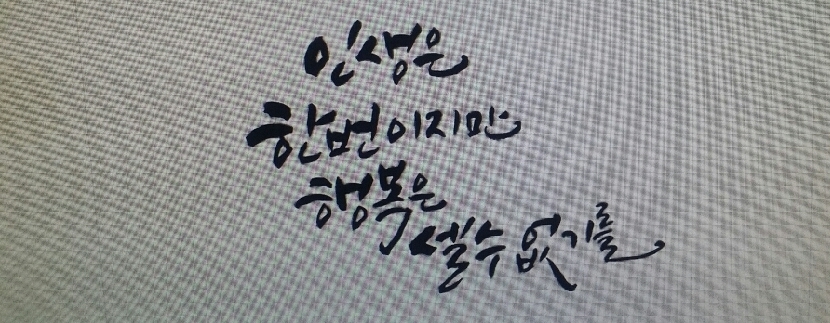 인생은
한번이지만
행복은
셀수없기를